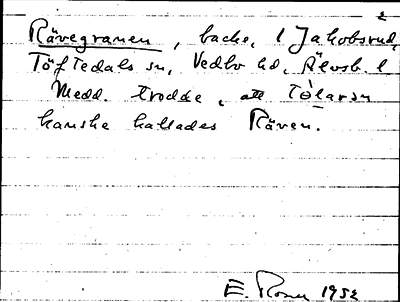 Rävegranen, backe, l Jakobsrud,
Töftedals sn, Vedbo hd, Älvsb. l
Medd. trodde, att
kanske kallades Räven.
E. 1952